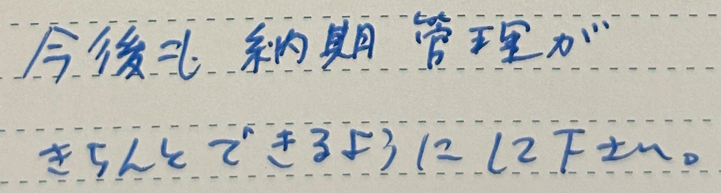 今後も 納期管理が
きちんとできるようにして下さい。